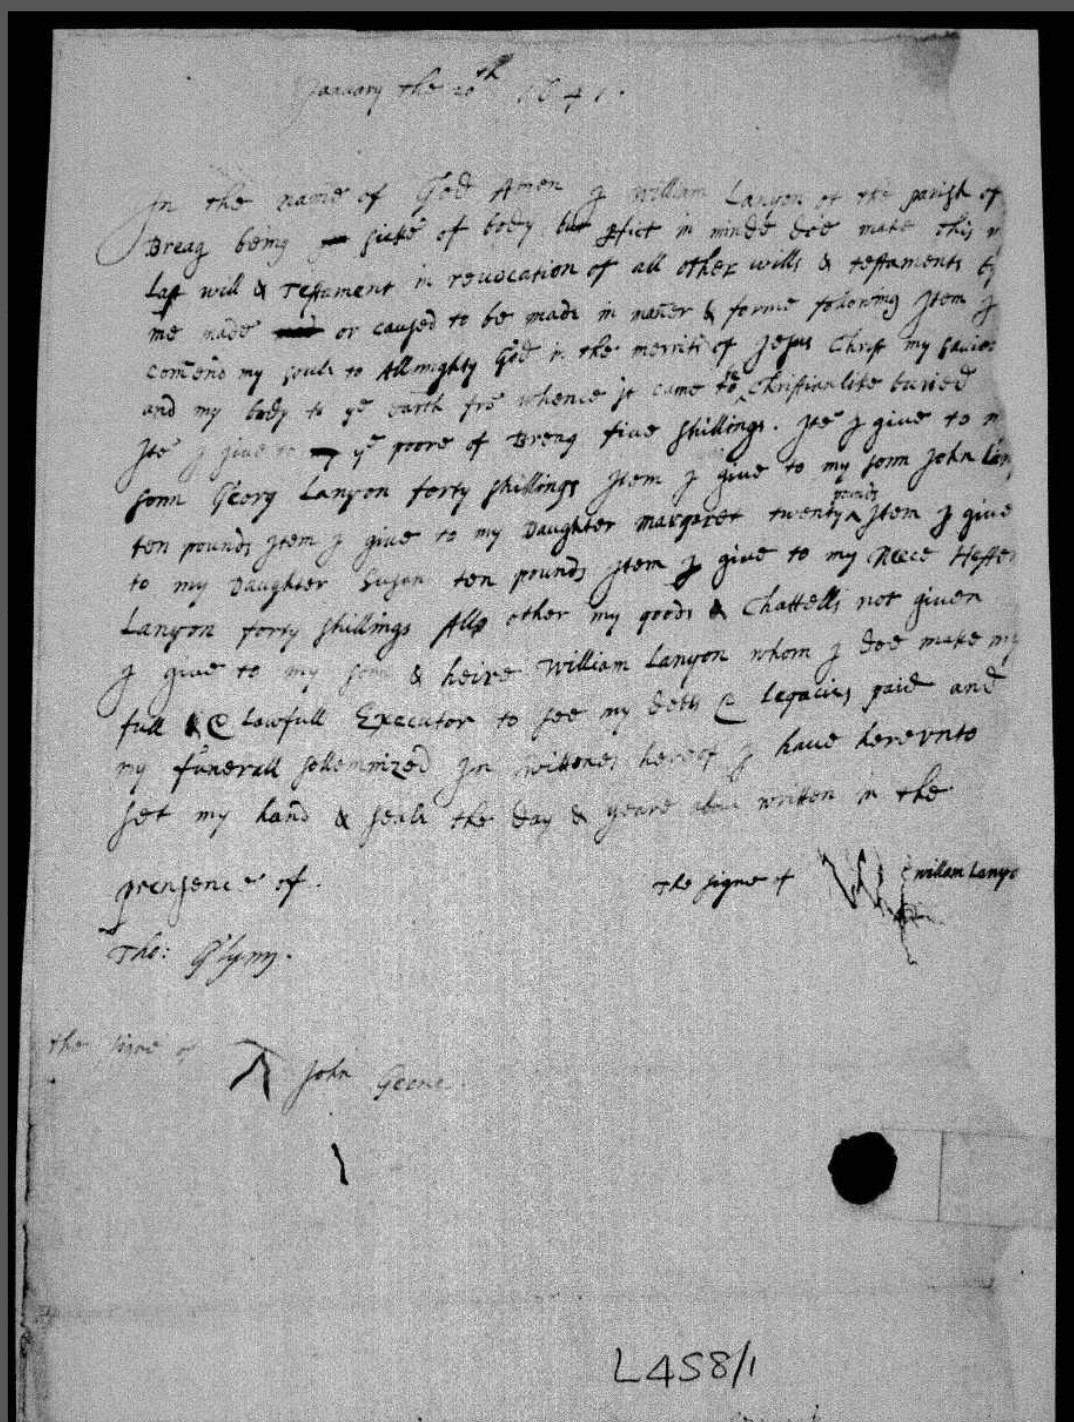 January the 20th 1641.
In the name of God Amen I William Lanyon of the parish of
Breag being sicke of body but pfict in minde doe make this
Last will & Testament in revocation of all other wills & testaments by
me made or caused to be made in maner & forme folowing Item I
comend my soule to Allmighty God in the merrits of Jesus Christ my savior
and my body to ye earth fro whence it came to be Christianlike buried
Ite I give to ye poore of Breag five shillings. Ite I give to
sonn Georg Lanyon forty shillings Item I give to my sonn John Lan
ten pounds Item I give to my Daughter Margaret twenty pounds Item I give
to my Daughter Susan ten pounds Item I give to my Neece Hester
Lanyon forty shillings All other my goods & Chattells not given
I give to my sonn & heire William Lanyon whom I doe make my
full & Lawfull Executor to see my debts & Legacies paid and
my funerall sollemnized In wittenes hereof I have herevnto
set my hand & seale the day & yeare above written in the
prensence of.
The signe of William Lanyo
Tho: Glynn.
the signe of John Geene
L458/1